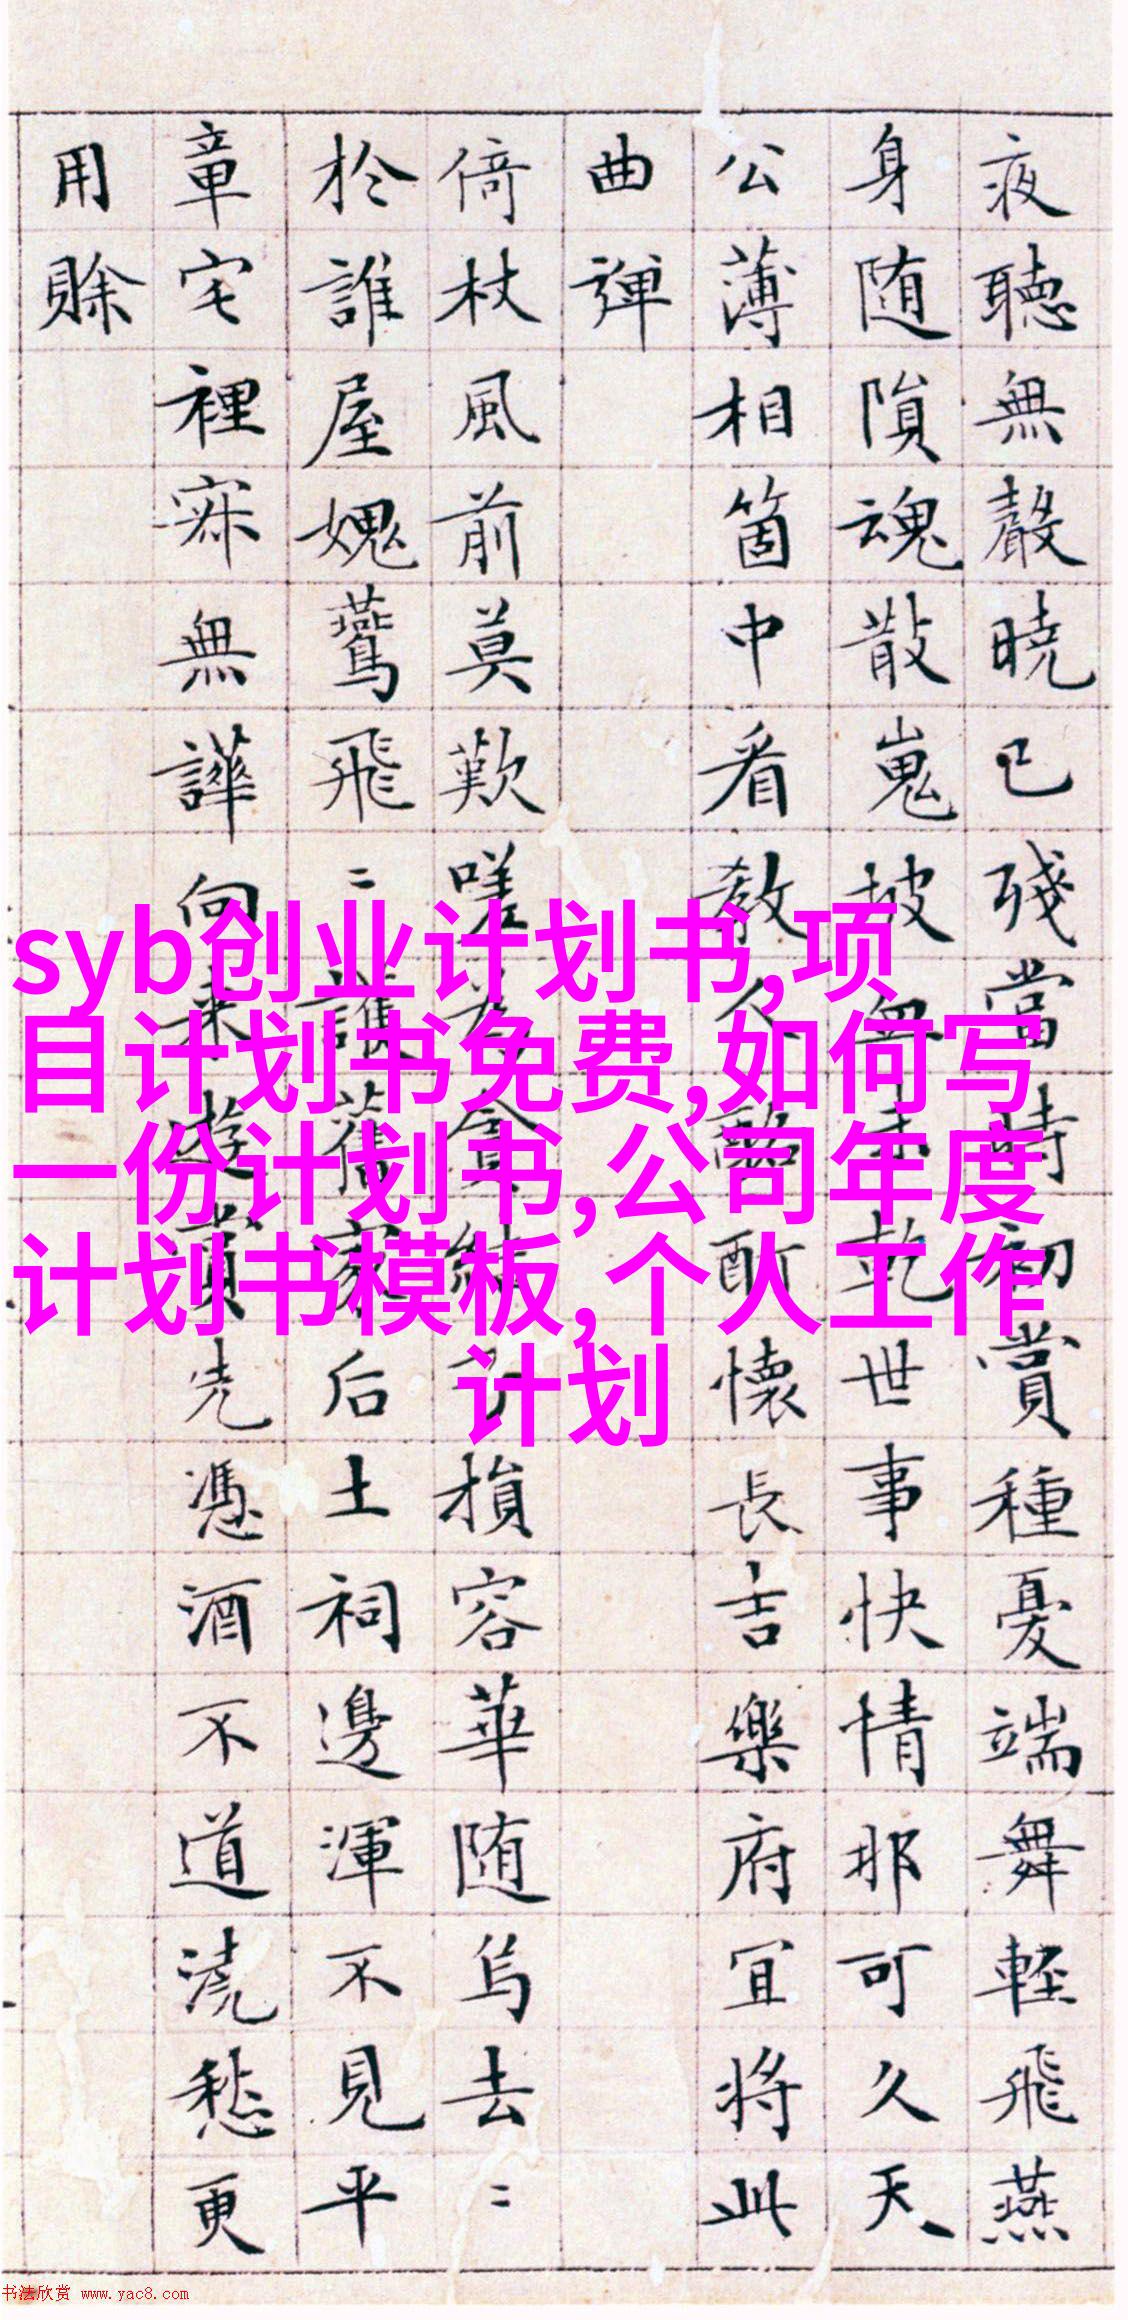 夜聽無聲曉已殘當時初賞種憂端舞輕飛燕
身随隕魂散嵬坡血未乾世事快情那可久天
公薄相箇中看教人酩酊懷長吉樂府宜將此
曲彈
倚杖風前莫歎嗟為貪結子損容華随烏去〻
於誰屋媿鷰飛〻誰舊家后土祠邊渾不見平
章宅裡寂無譁向来遊賞先憑酒不道澆愁更
用賒
syb创业计划书,项
目计划书免费,如何写
一份计划书,公司年度
计划书模板,个人工作
计划
书法欣赏 www.yac8.com